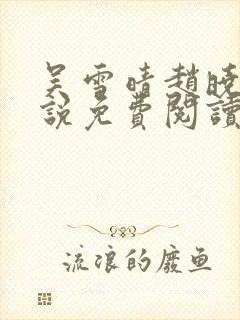 吴雪晴趙曉
說免費閱讀
流浪的廢鱼